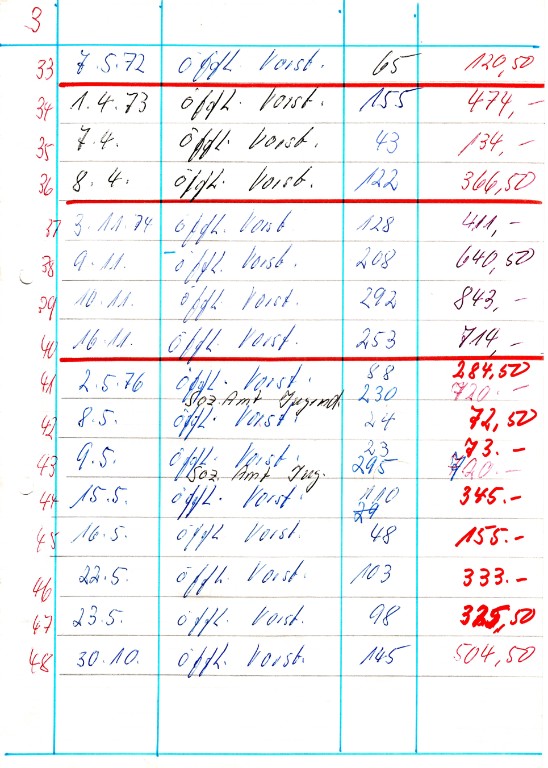 3
33 7.5.72 öfftl. Vorst. 65 120,50
34 1.4.73 öfftl. Vorst. 155 474,-
35 7.4. öfftl. Vorst. 43 134,-
36 8.4. öfftl. Vorst. 122 366,50
37 3.11.74 öfftl. Vorst 128 411,-
38 9.11. öfftl. Vorst. 208 640,50
39 10.11. öfftl. Vorst. 292 843,-
40 16.11. öfftl. Vorst. 253 714,-
41 2.5.76 öfftl. Vorst. 88 284,50
Soz. Amt Jugend. 230 720.-
42 8.5. öfftl. Vorst. 24 72,50
43 9.5. öfftl. Vorst. 23 73.-
Soz. Amt Jug. 295 720.-
44 15.5. öfftl. Vorst. 110 345.-
29
45 16.5. öfftl. Vorst. 48 155.-
46 22.5. öfftl. Vorst. 103 333.-
47 23.5. öfftl. Vorst. 98 325,50
48 30.10. öfftl. Vorst. 145 504,50